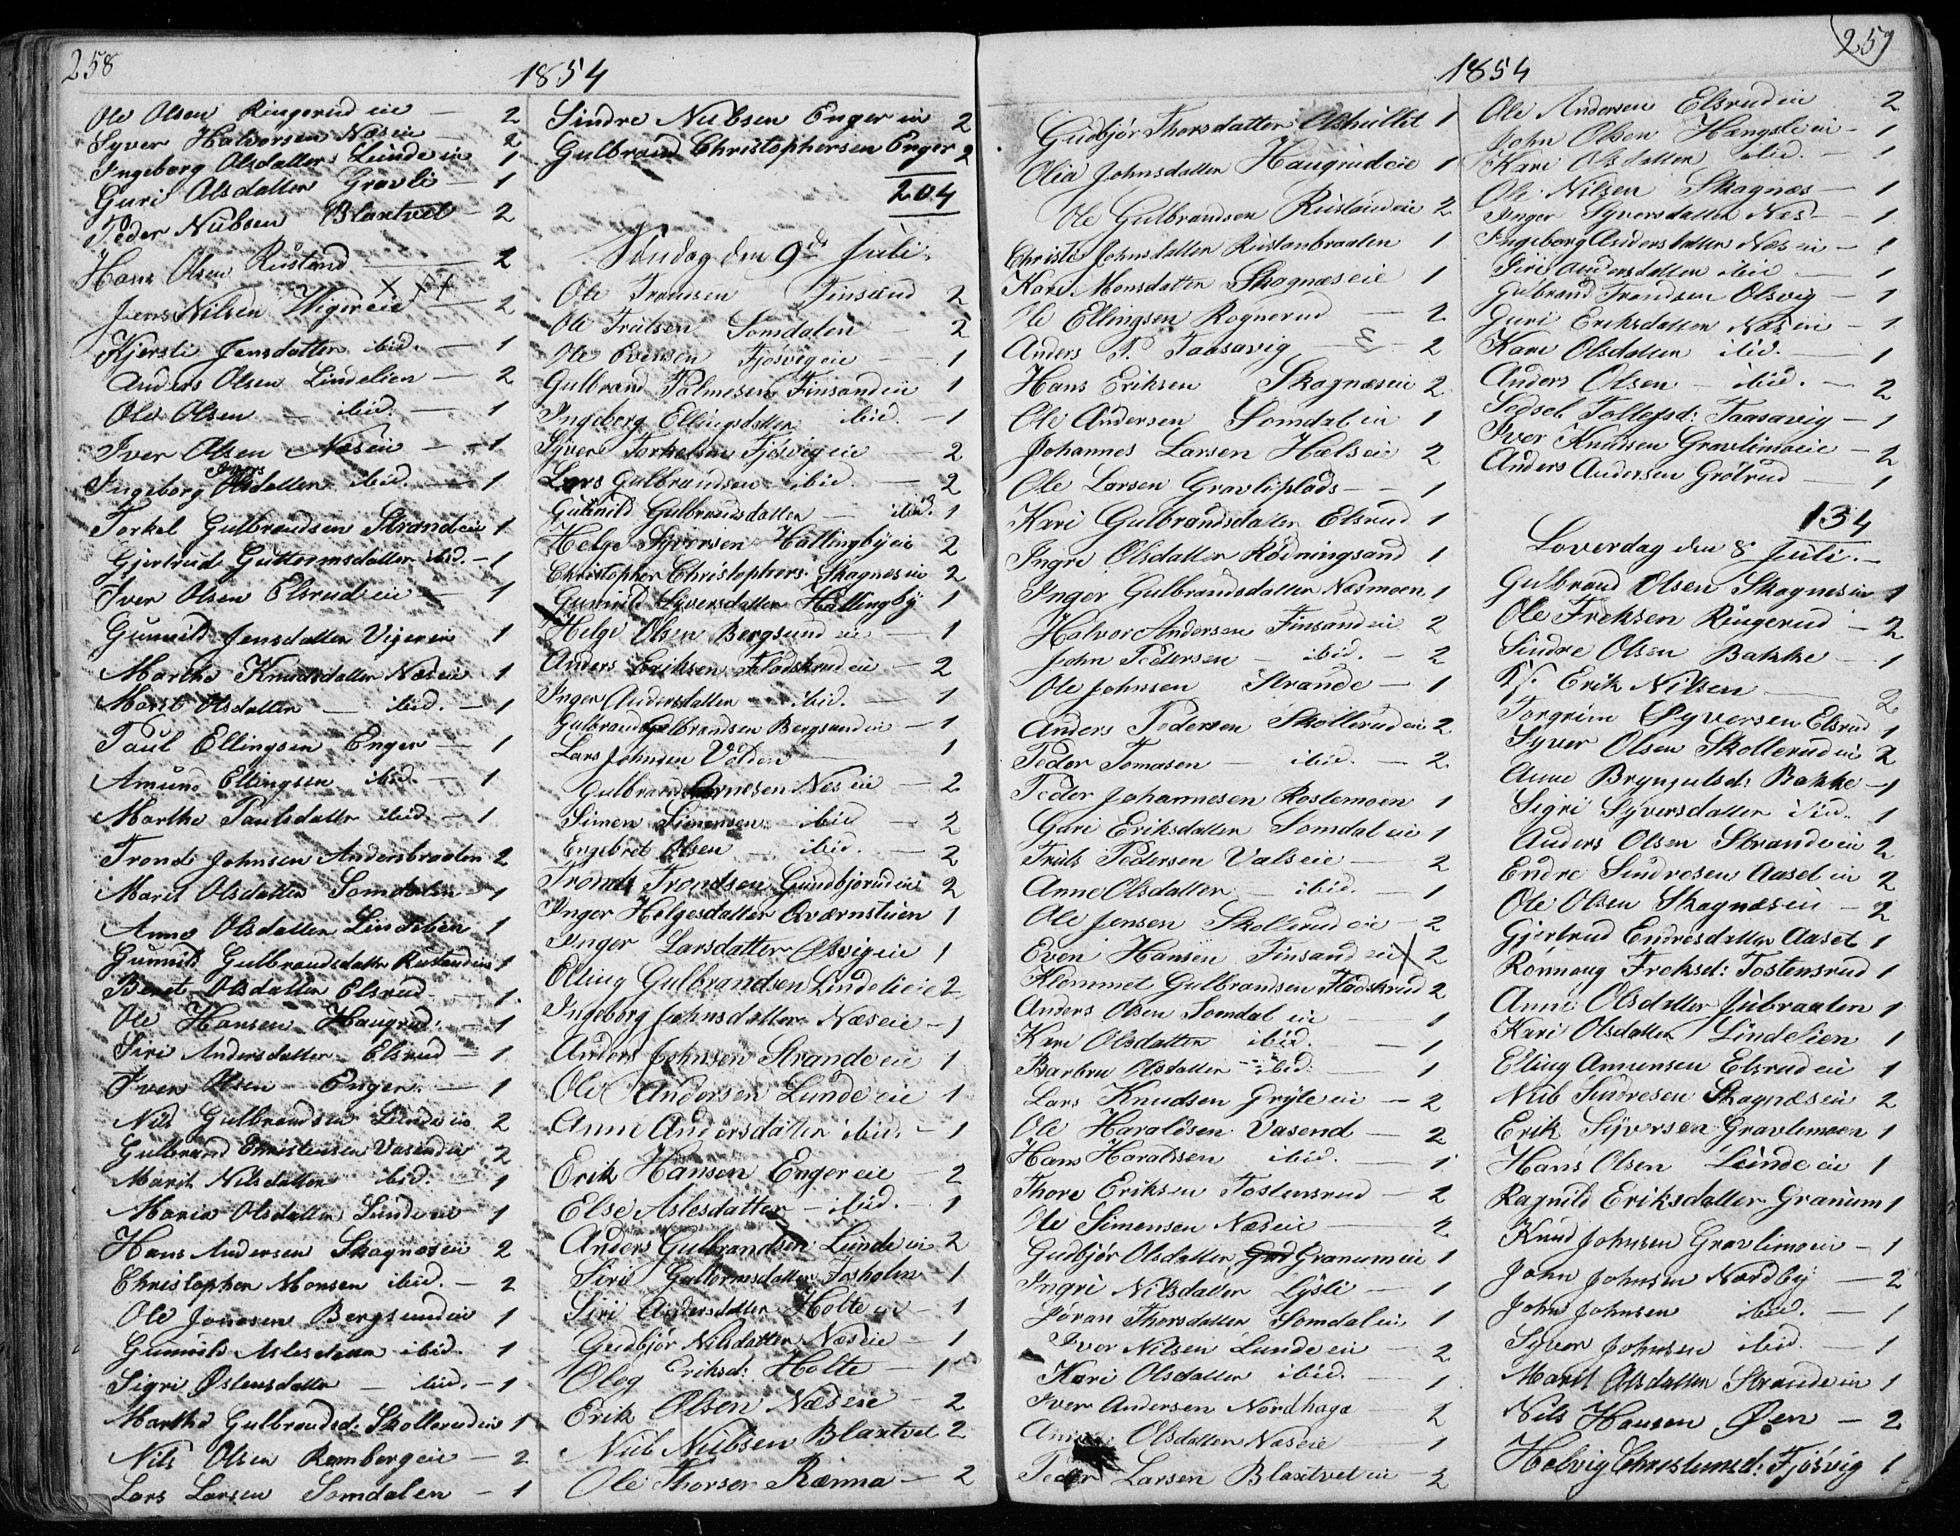 258
1854
Ole Olsen Ringerud eie — 2
Syver Halvorsen Næseie — 2
Ingeborg Olsdatter Lunde eie 1
Guri Olsdatter Gravli — 1
Peder Nubsen Blaxtvet — 2
Hans Olsen Rustand — 2
Jens Nilsen Vigereie — 2
Kjersti Jensdatter ibid. — 1
Anders Olsen Lindelien — 2
Ole Olsen — ibid. — 1
Iver Olsen Næseie — 1
Ingeborg Olsdatter ibid. — 1
Torkel Gulbrandsen Strandeie 1
Gjertrud Guttormsdatter ibid. — 1
Iver Olsen Elsrudeie — 1
Gunvild Jensdatter Vigereie 1
Marthe Knudsdatter Næseie 1
Marit Olsdatter — ibid. — 1
Paul Ellingsen Enger — 1
Amund Ellingsen ibid. — 1
Marthe Paulsdatter ibid. — 1
Trond Johnsen Andersbraaten 2
Marit Olsdatter Somdalen — 1
Anne Olsdatter Lindelien 1
Gunvild Gulbrandsdatter Rustandeie 1
Beret Olsdatter Elsrud — 1
Ole Hansen Haugrud — 1
Siri Andersdatter Elsrud — 1
Iver Olsen Enger — 1
Nils Gulbrandsen Lunde eie 2
Gulbrand Christensen Vasendeie 2
Marit Nilsdatter ibid. — 1
Maren Olsdatter Lunde eie 1
Hans Andersen Skagnæseie 2
Christopher Monsen ibid. — 2
Ole Jonasen Bergsundeie 1
Gunvild Aslesdatter ibid. 1
Sigri Østensdatter — ibid. — 1
Marthe Gulbrandsd: Skollerudeie 1
Nils Olsen Rambergeie — 2
Lars Larsen Somdalen — 1
Sindre Nubsen Enger eie 2
Gulbrand Christophersen Enger 2
204
Søndag den 9de Juli.
Ole Trondsen Finsand 2
Ole Trulsen Somdalen 2
Ole Evensen Fjøsvigeie — 1
Gulbrand Palmesen Finsandeie 1
Ingeborg Ellingsdatter ibid. — 1
Syver Torkelsen Fjøsvigeie — 2
Lars Gulbrandsen ibid. — 2
Gunnild Gulbrandsdatter — ibid. 1
Helge Syversen Hallingbyeie 2
Christopher Christophers: Skagnæseie 2
Gunvild Syversdatter Hallingby 1
Helge Olsen Bergsund eie — 1
Anders Eriksen Flaskerudeie — 2
Inger Andersdatter — ibid. — 1
Gulbrand Gulbrandsen Bergsundeie — 1
Lars Johnsen Velden — 1
Gulbrand Arnesen Næseie — 2
Simen Simensen — ibid — 2
Engebret Olsen — ibid. — 2
Trond Trondsen Gundbjørudeie 2
Inger Helgesdatter Qværnstuen 1
Inger Larsdatter Ølsvigeie 1
Elling Gulbrandsen Lindelieie 2
Ingeborg Johnsdatter Næseie — 1
Anders Johnsen Strande eie 1
Ole Andersen Lunde eie 1
Anne Andersdatter ibid. — 1
Erik Hansen Enger eie — 2
Else Aslesdatter — ibid. — 1
Anders Gulbrandsen Lunde eie 2
Siri Guttormsdatter Fosholm 1
Siri Andersdatter Holte eie — 1
Gudbjør Nilsdatter Næseie — 1
Oleg Eriksd: Holte — 1
Erik Olsen Næseie — 2
Nub Nubsen Blaxtvet 2
Ole Thorsen Rænna — 2
259
1854
Gudbjør Thorsdatter 1
Olia Johnsdatter Haugrudeie 1
Ole Gulbrandsen Rustandeie 2
Christi Johnsdatter Rustanbraaten 1
Kari Monsdatter Skagnæseie 1
Ole Ellingsen Rognerud — 2
Anders P. Taasavig — 2
Hans Eriksen Skagnæseie 2
Ole Andersen Somdal eie 1
Johannes Larsen Hælseie 2
Ole Larsen Gravliplads — 1
Kari Gulbrandsdatter Elsrud 1
Ingri Olsdatter Rødningsand 1
Inger Gulbrandsdatter Næsmoen 1
Halvor Andersen Finsandeie 2
John Pedersen — ibid. — 2
Ole Johnsen Strande — 1
Anders Pedersen Skollerudeie 2
Peder Tomasen — ibid. — 2
Peder Johannesen Rostemoen 1
Gari Eriksdatter Somdal eie 1
Truls Pedersen Valseie — 2
Anne Olsdatter — ibid. — 1
Ole Jensen Skollerud eie — 2
Even Hansen Finsand eie 2
Klemmet Gulbrandsen Flaskrud 2
Anders Olsen Somdal eie — 1
Kari Olsdatter ibid. — 1
Barbru Olsdatter ibid. — 1
Lars Knudsen Gryteeie — 2
Ole Haraldsen Vasend — 2
Hans Haraldsen ibid. — 1
Thore Eriksen Tostensrud — 2
Ole Simensen Næseie — 2
Gudbjør Olsdatter Granumeie 1
Ingri Nilsdatter Lysli — 1
Jøran Thorsdatter Somdal eie 1
Iver Nilsen Lunde eie — 2
Kari Olsdatter ibid. — 1
Iver Andersen Nordhaga 2
Anne Olsdatter Næseie — 1
Peder Larsen Blaxtvet eie — 2
Ole Andersen Elsrudeie 2
John Olsen Hængsleeie — 1
Kari Olsdatter ibid. — 1
Ole Nilsen Skagnæs — 1
Inger Syversdatter Næs — 1
Ingeborg Andersdatter Næseie — 1
Siri Andersdatter ibid — 1
Gulbrand Trondsen Olsvig — 1
Guri Eriksdatter Næseie — 1
Kari Olsdatter ibid. — 1
Anders Olsen — ibid. — 2
Sedsel Tollefsd: Taasavig — 1
Iver Knudsen Gravlimoeie — 2
Anders Andersen Grøtrud — 1
134
Løverdag den 8 Juli.
Gulbrand Olsen Skagnæseie 1
Ole Freksen Ringerud — 2
Sindre Olsen Bakke — 1
Erik Nilsen — 2
Torgrim Syversen Elsrud 1
Syver Olsen Skollerud eie 2
Anne Brynjulsd: Bakke — 1
Sigri Syversdatter ibid. 1
Anders Olsen Strandeeie 2
Endre Sindresen Aaset eie 2
Ole Olsen Skagnæseie — 2
Gjertrud Endresdatter Aaset 1
Rønnaug Freksd: Tostensrud 1
Anne Olsdatter Jubraaten 1
Kari Olsdatter Lindelien 1
Elling Amunsen Elsrud eie 1
Nub Sindresen Skagnæseie 2
Erik Syversen Gravlimoen 1
Hans Olsen Lunde eie 1
Ragnild Eriksdatter Granum 1
Knud Johnsen Gravlimoeie — 1
John Johnsen Nordby — 2
John Johnsen ibid. — 1
Syver Johnsen ibid. — 1
Marit Olsdatter Strande eie 1
Nils Hansen Øen — 2
Helvig Christensd: Fjøsvig 1